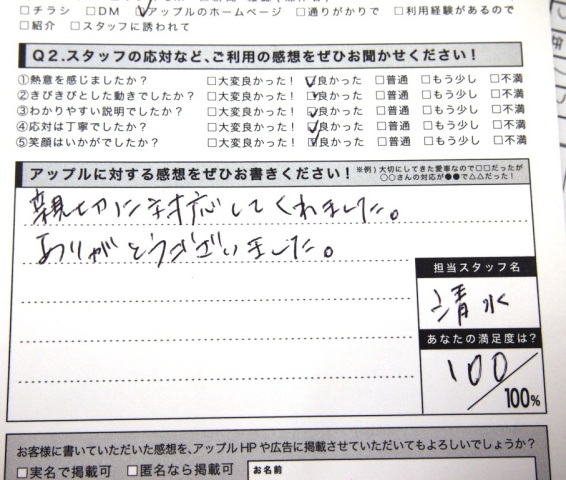 □チラシ □DM ☑アップルのホームページ □通りがかりで □利用経験があるので
□紹介 □スタッフに誘われて
Q2.スタッフの応対など、ご利用の感想をぜひお聞かせください!
①熱意を感じましたか? □大変良かった! ☑良かった □普通 □もう少し □不満
②きびきびとした動きでしたか? □大変良かった! ☑良かった □普通 □もう少し □不満
③わかりやすい説明でしたか? □大変良かった! ☑良かった □普通 □もう少し □不満
④応対は丁寧でしたか? □大変良かった! ☑良かった □普通 □もう少し □不満
⑤笑顔はいかがでしたか? □大変良かった! ☑良かった □普通 □もう少し □不満
アップルに対する感想をぜひお書きください! ※例)大切にしてきた愛車なので□□だったが
○○さんの対応が●●で△△だった!
親切に対応してくれました。
ありがとうございました。
担当スタッフ名
清水
あなたの満足度は?
100/100%
お客様に書いていただいた感想を、アップルHPや広告に掲載させていただいてもよろしいでしょうか?
□実名で掲載可 □匿名なら掲載可 お名前